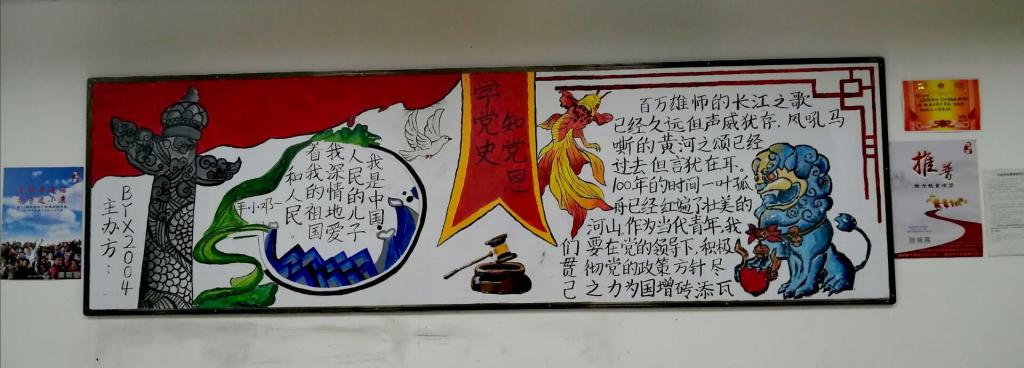 主办方：
BYX2004
我是中国
人民的儿子
我深情地爱
着我的祖国
和人民。
平小邓一
学党史
知党恩
百万雄师的长江之歌
已经久远但声威犹存,风吼马
嘶的黄河之颂已经
过去但言犹在耳。
100年的时间一叶孤
舟已经红遍了壮美的
河山,作为当代青年,我
们要在党的领导下,积极
贯彻党的政策方针尽
己之力为国增砖添瓦
推普